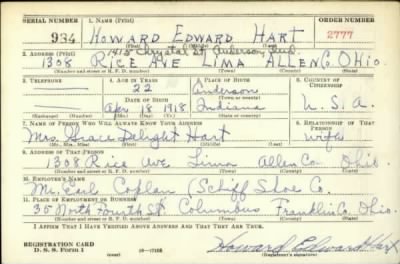 SERIAL NUMBER 1. NAME (Print) ORDER NUMBER
934 HOWARD EDWARD HART 2777
(First) (Middle) (Last)
1415 Chrystal St. Anderson, Ind.
2. ADDRESS (Print)
1308 RICE AVE LIMA ALLEN CO. OHIO.
(Number and street or R. F. D. number) (Town) (County) (State)
3. TELEPHONE 4. AGE IN YEARS 5. PLACE OF BIRTH 6. COUNTRY OF CITIZENSHIP
22 Anderson
DATE OF BIRTH (Town or county)
Apr 18 1918 Indiana U. S. A.
(Exchange) (Number) (Mo.) (Day) (Yr.) (State or country)
7. NAME OF PERSON WHO WILL ALWAYS KNOW YOUR ADDRESS 8. RELATIONSHIP OF THAT PERSON
Mrs. Grace Delight Hart wife
(Mr., Mrs., Miss) (First) (Middle) (Last)
9. ADDRESS OF THAT PERSON
1308 Rice Ave. Lima Allen Co. Ohio
(Number and street or R. F. D. number) (Town) (County) (State)
10. EMPLOYER'S NAME
Mr. Earl Coplan (Schiff Shoe Co.
11. PLACE OF EMPLOYMENT OR BUSINESS
35 North Fourth St. Columbus Franklin Co. Ohio.
(Number and street or R. F. D. number) (Town) (County) (State)
I AFFIRM THAT I HAVE VERIFIED ABOVE ANSWERS AND THAT THEY ARE TRUE.
REGISTRATION CARD
D. S. S. Form 1 (over) Howard Edward Hart
(Registrant's signature)